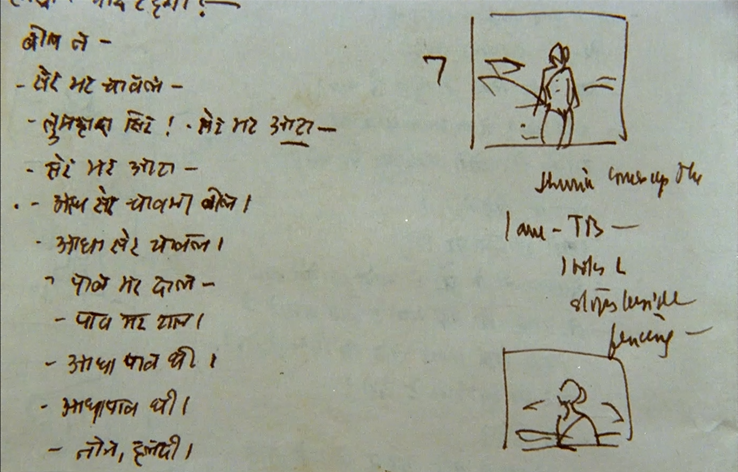 बोल ले -
- सेर भर चावल -
- तुम्हारा सिर! - सेर भर आटा -
- सेर भर आटा -
- आधा सेर चावल बोल।
- आधा सेर चावल।
- पाव भर दाल -
- पाव भर दाल।
- आधा पाव घी।
- आधा पाव घी।
- नोन, हलदी।
7
comes up the
lane - TB -
stops beside
fencing -